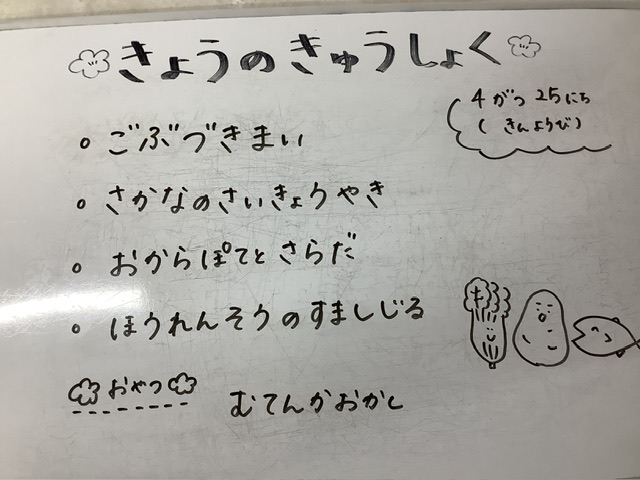 きょうのきゅうしょく
4がつ25にち
(きんようび)
ごぶづきまい
さかなのさいきょうやき
おからぽてとさらだ
ほうれんそうのすましじる
おやつ
むてんかおかし